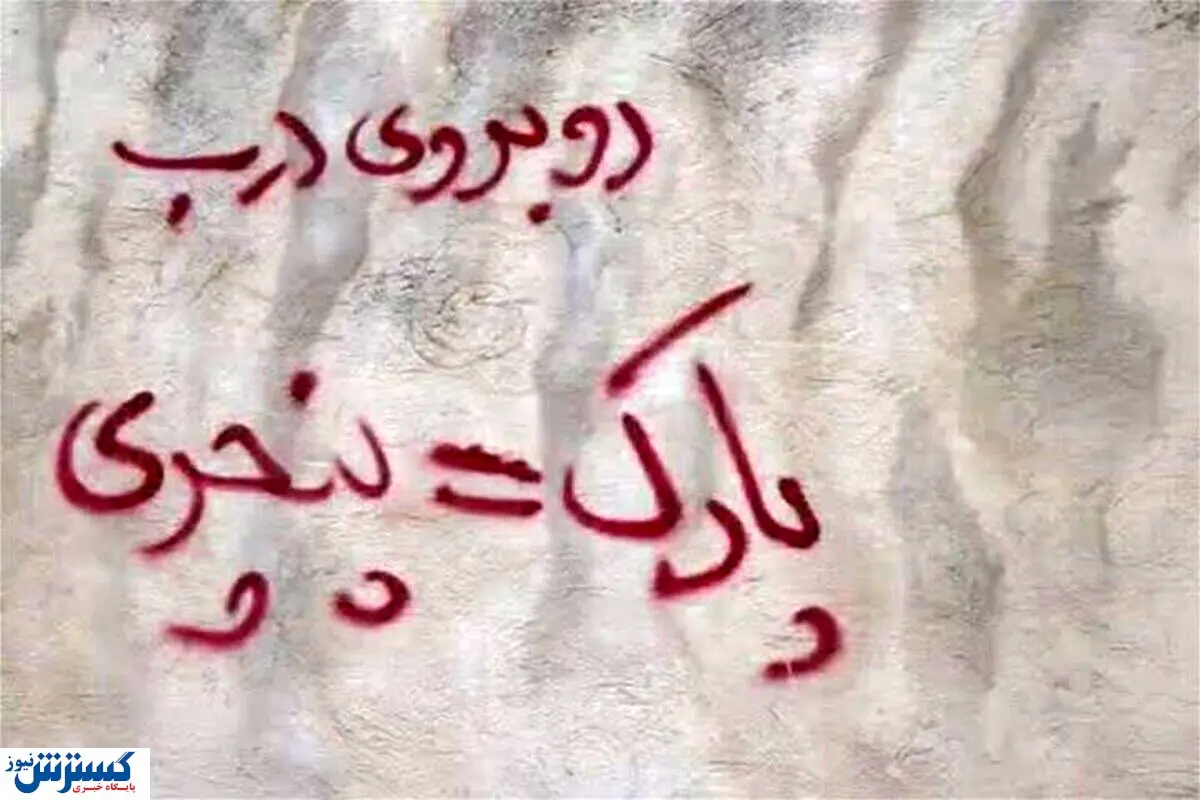 روبروی درب
پارک = پنچری
گسترش نیوز
پایگاه خبری